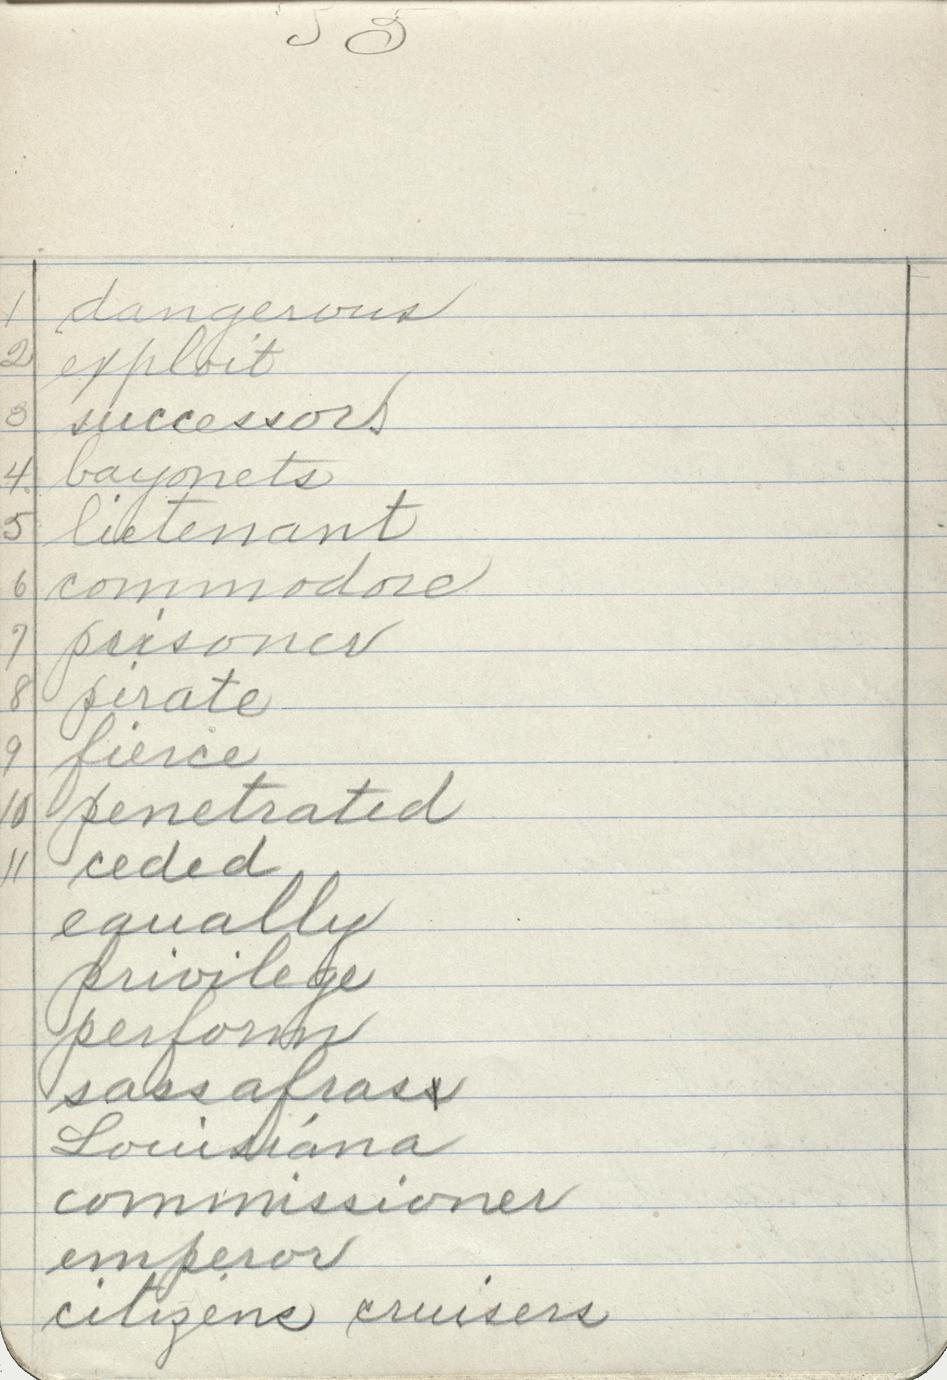 55
1 dangerous
2 exploit
3 successors
4. bayonets
5 lietenant
6 commodore
7 prisoner
8 pirate
9 fierce
10 penetrated
11 ceded
equally
privilege
perform
sassafrass
Louisiana
commissioner
emperor
citizens cruisers